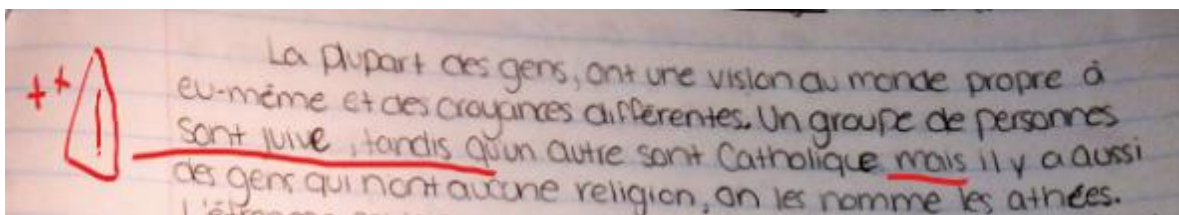 ++ !
La plupart des gens, ont une vision du monde propre à
eu-même et des croyances différentes. Un groupe de personnes
sont juive, tandis qu'un autre sont Catholique mais il y a aussi
des gens qui n'ont aucune religion, on les nomme les athées.